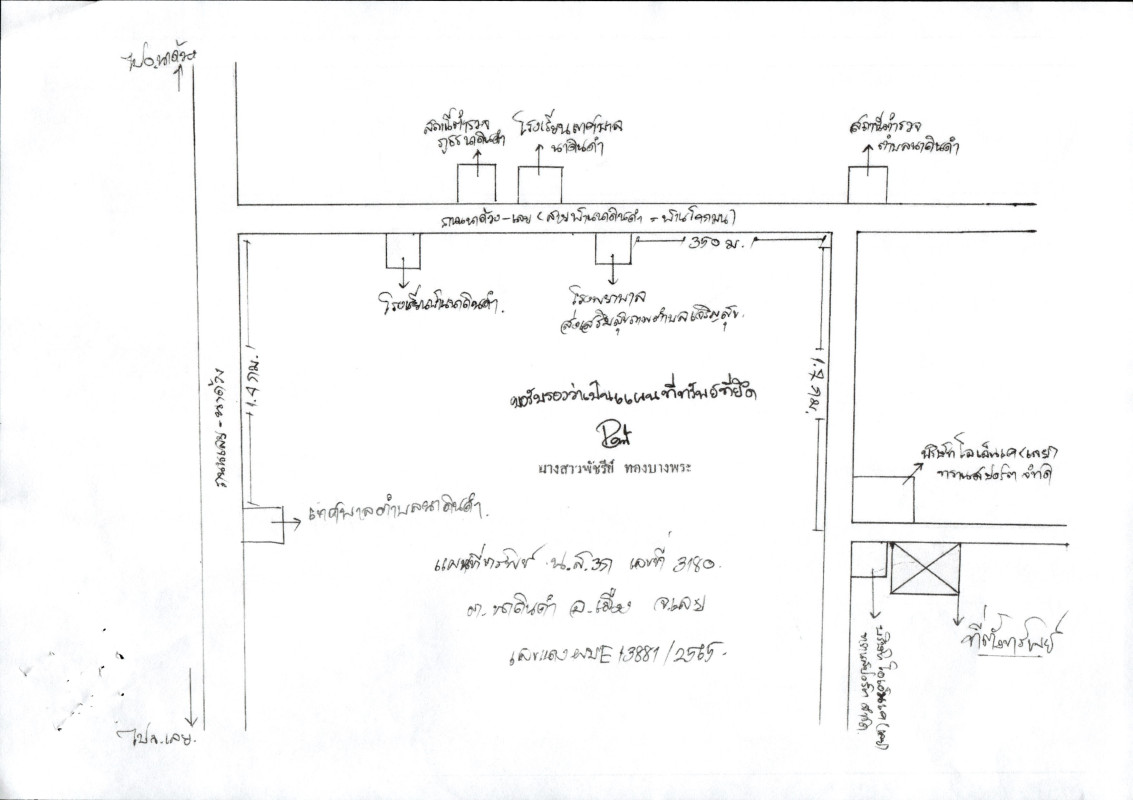 ไป อ.นาด้วง
สถานีตำรวจ
ภูธรนาดินดำ
โรงเรียนเทศบาล
นาดินดำ
สถานีตำรวจ
ตำบลนาดินดำ
ถนนนาด้วง-เลย (สายบ้านนาดินดำ - บ้านโคกมน)
350 ม.
โรงเรียนบ้านนาดินดำ.
โรงพยาบาล
ส่งเสริมสุขภาพตำบลเจริญสุข.
1.4 กม.
1.7 กม.
ถนนเลย - นาด้วง
ขอรับรองว่าเป็นแผนที่ทรัพย์ที่ยึด
นางสาวพัชรีย์ ทองบางพระ
บริษัท โอเอ็นเค (เลย)
ทรานสปอร์ต จำกัด
เทศบาลตำบลนาดินดำ.
แผนที่ทรัพย์ น.ส.3ก เลขที่ 3180.
ต.นาดินดำ อ.เมือง จ.เลย
เลขแดง ผบE 13881/2565.
ที่ตั้งทรัพย์
บริษัท โอเอ็นเค (เลย)
ทรานสปอร์ต จำกัด.
ไป จ.เลย.